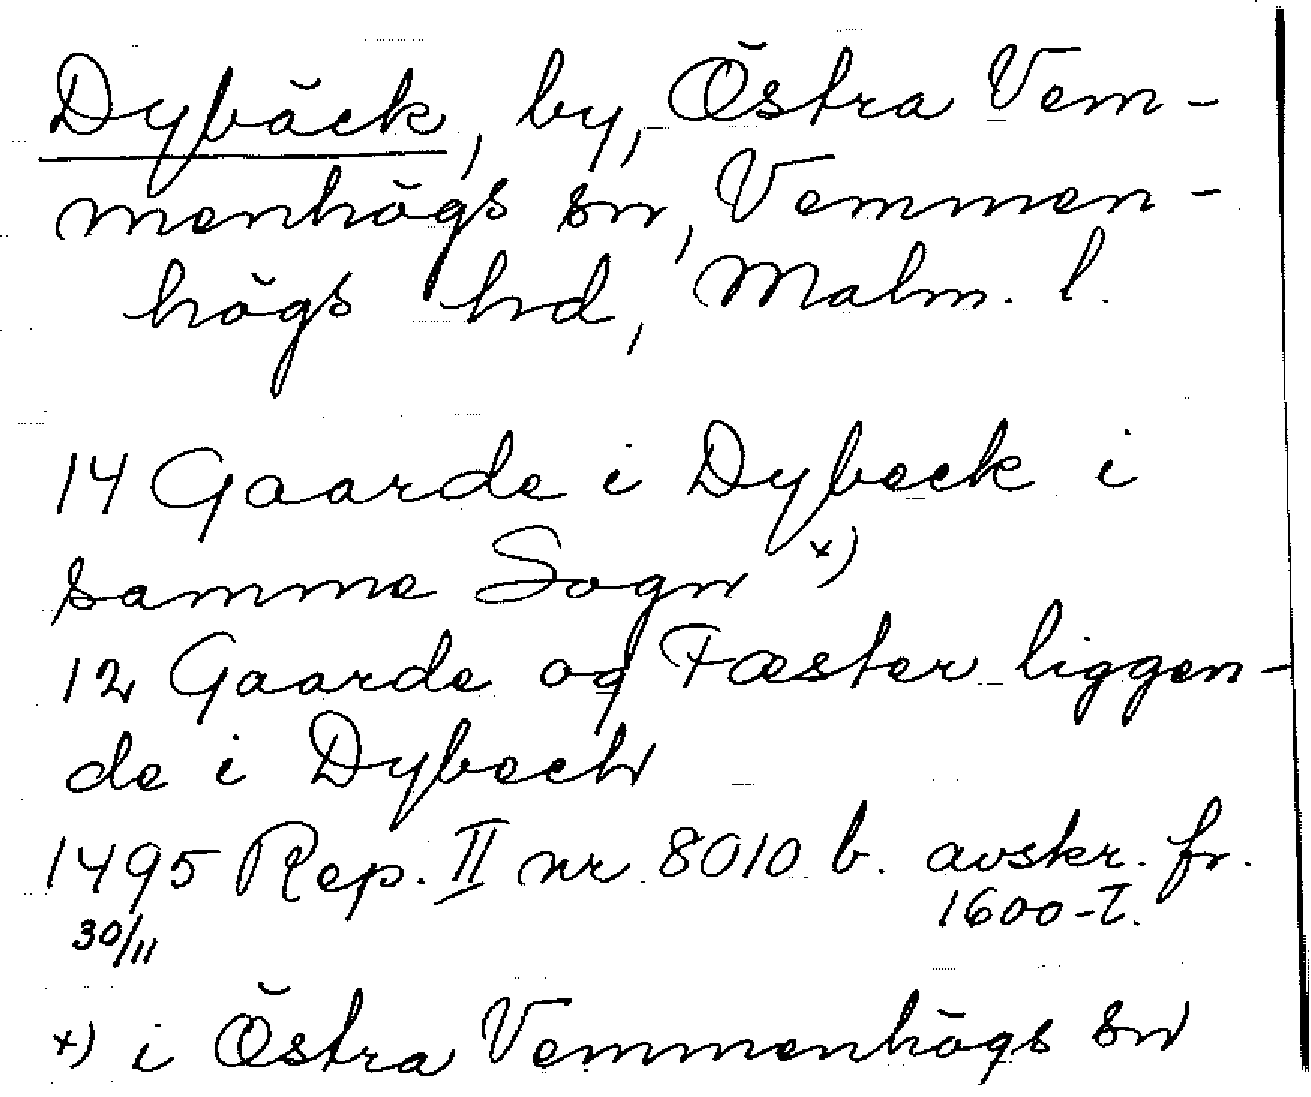 Dybäck, by, Östra Vem-
menhögs sn, Vemmen-
högs hd, Malm. l.
14 Gaarde i Dybeck i
samme Sogn x)
12 Gaarde og Fæster liggen-
de i Dybeck
1495 Rep. II nr 8010 b. avskr. fr.
30/11 1600-t.
x) i Östra Vemmenhögs sn